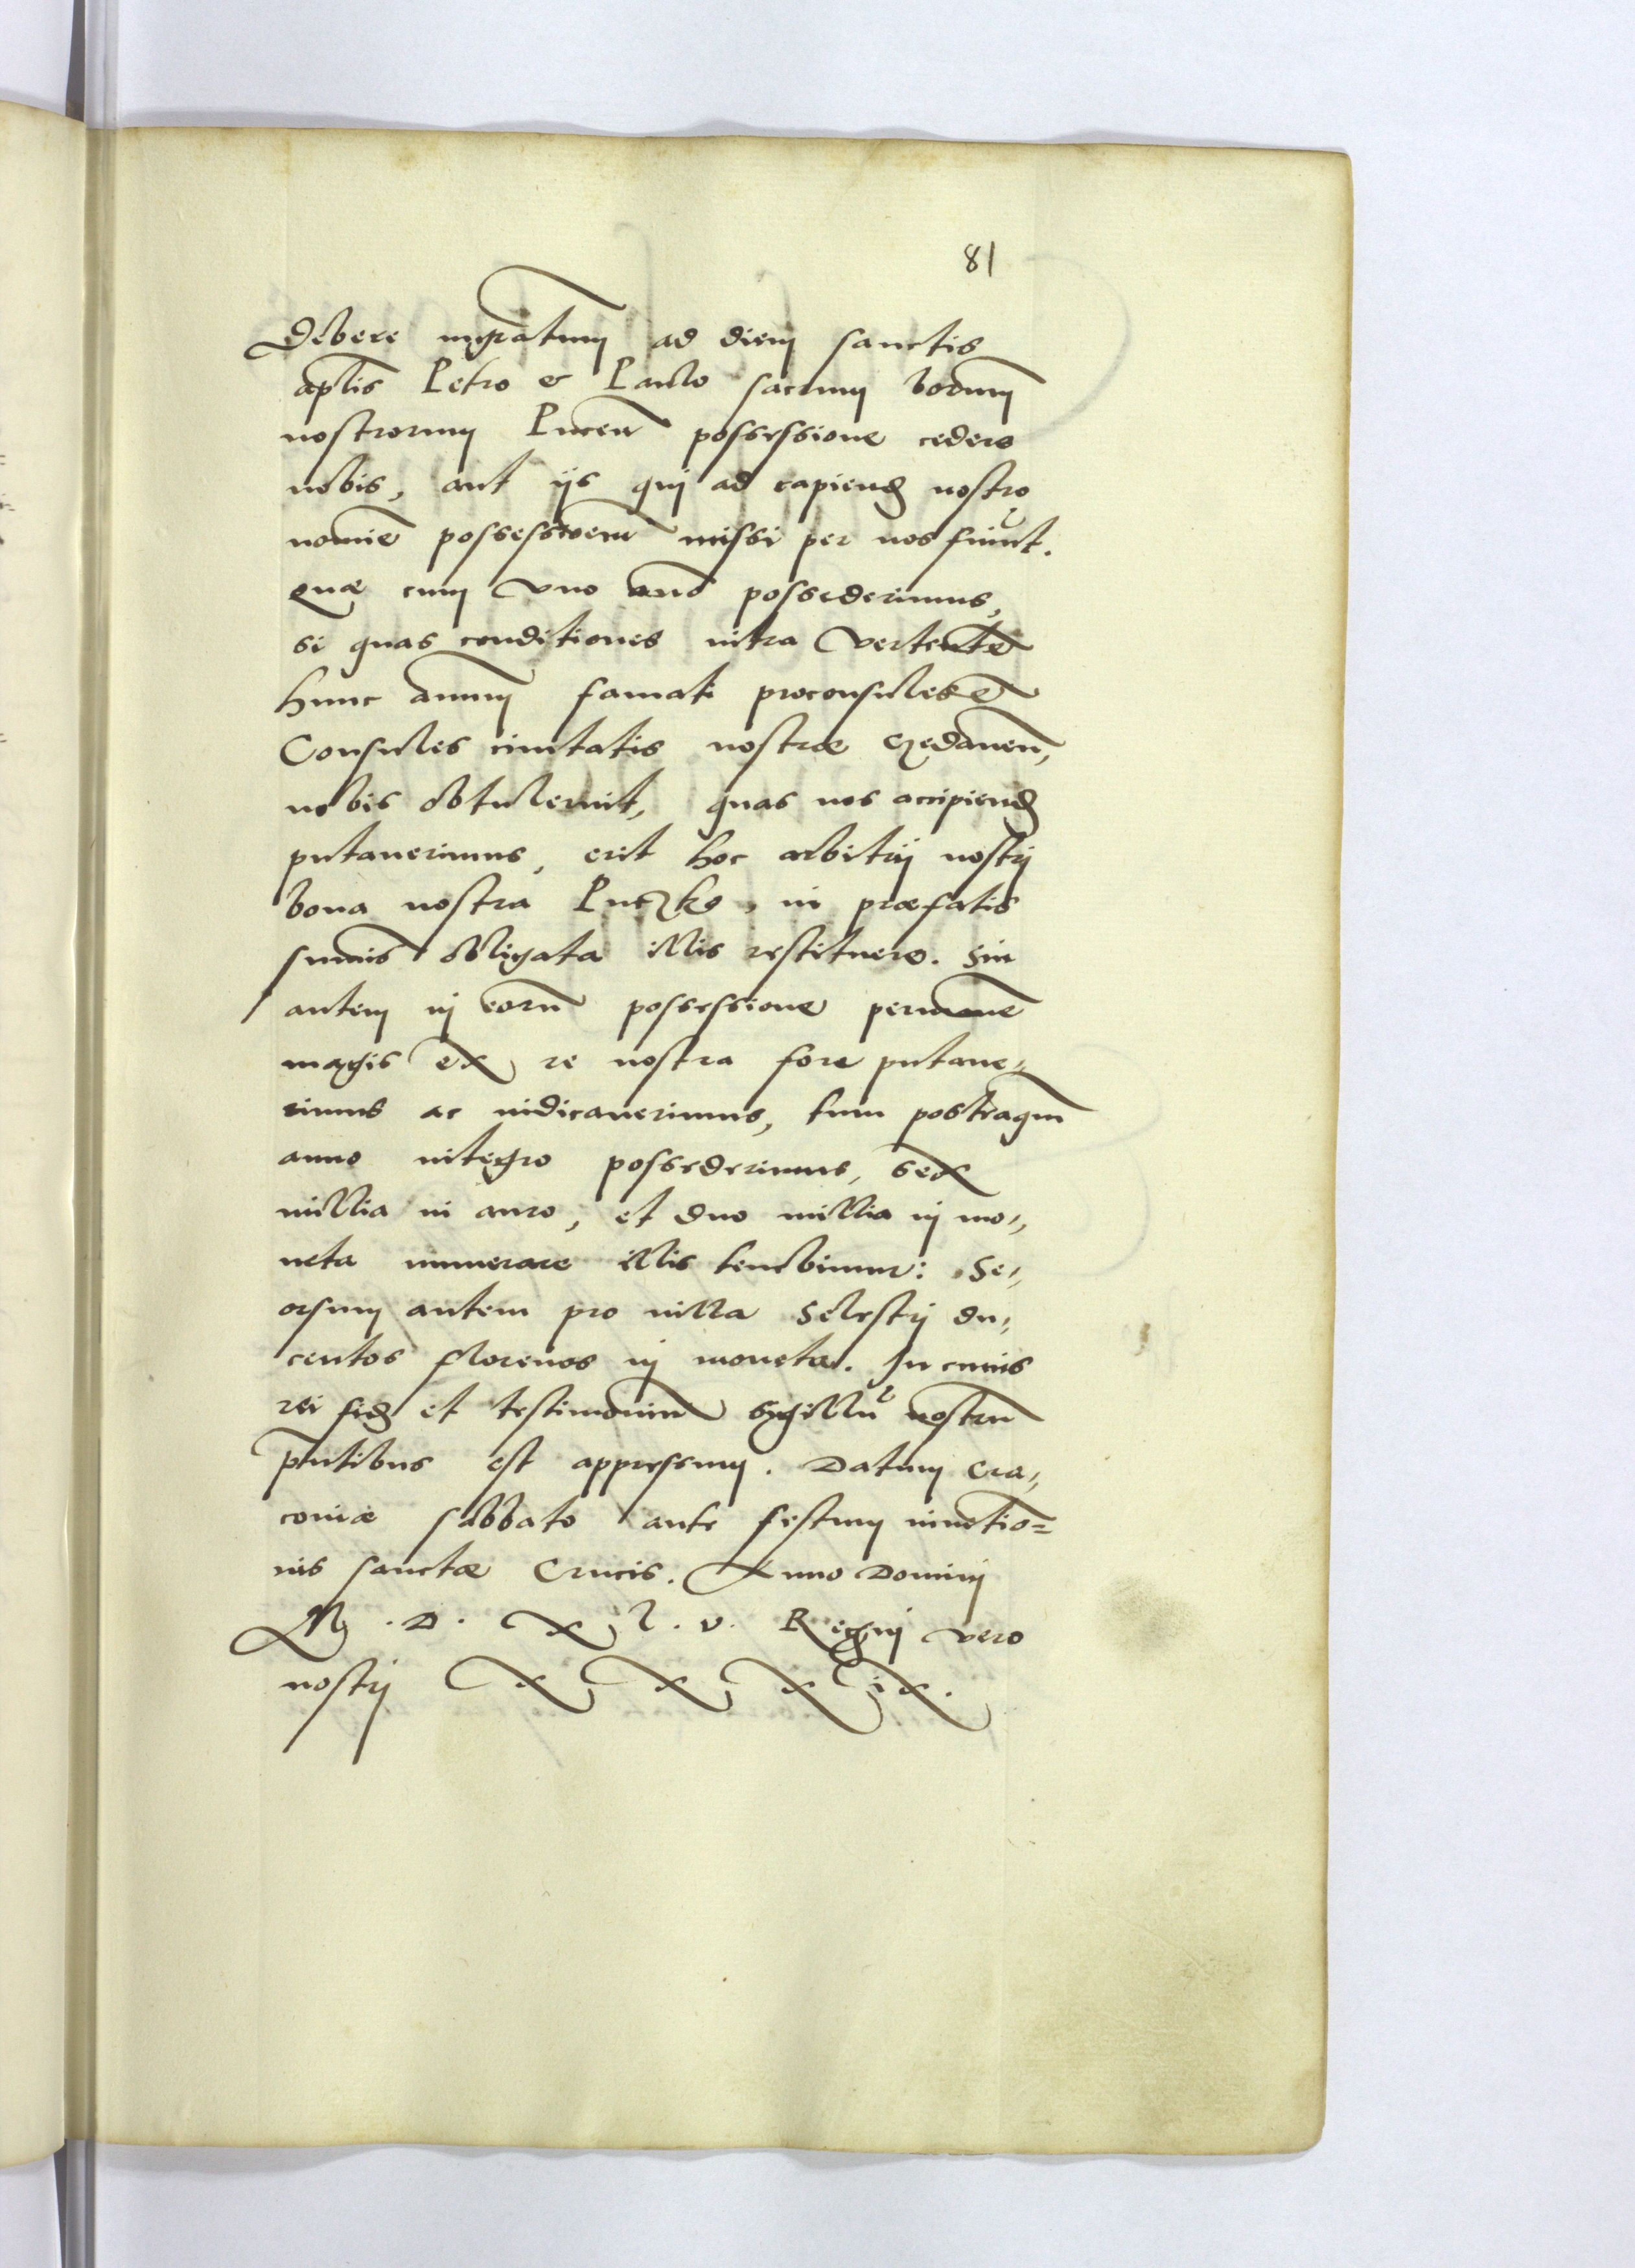 81
Debere migratum ad diem sanctis
aplis Petro & Paulo sacrum bonorum
nostrorum Pucen possessione cedere
nobis, aut ijs qui ad capiend nostro
nomie possessionem missi per nos fuerint.
quæ cum vno anno possederimus,
si quas conditiones intra vertente
hunc annum famati proconsules et
Consules ciuitatis nostræ Gedanen,
nobis obtulerint, quas nos accipiend
putauerimus, erit hoc arbitrij nostrj
bona nostra Putzko, in præfatis
sumis obligata illis restituere. Sin
autem in eorum possessione permane
magis ex re nostra fore putaue,,
rimus ac iudicauerimus, tum posteaqum
anno integro possederimus, sex
millia in auro, et duo millia in mo,,
neta numerare illis tenebimur: Se,,
orsum autem pro uilla Selestrj du,,
centos florenos in moneta. In cuius
rei fid et testimonium sigillu nostru
pntibus est appressum. Datum Cra,,
couiæ sabbato ante festum inuentio=
nis sanctæ Crucis. Anno Dominj
M . D . X L . V . Regnj vero
nostrj X X X I X .